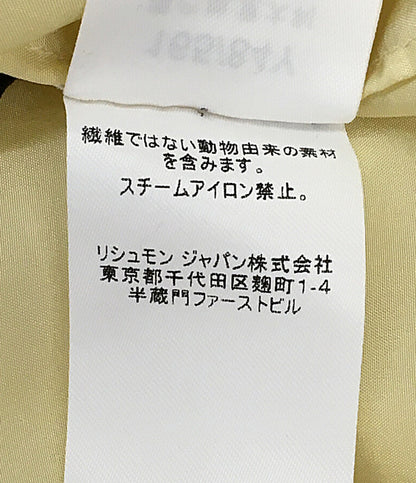 繊維ではない動物由来の素材
を含みます。
スチームアイロン禁止。
リシュモン ジャパン株式会社
東京都千代田区麹町1-4
半蔵門ファーストビル